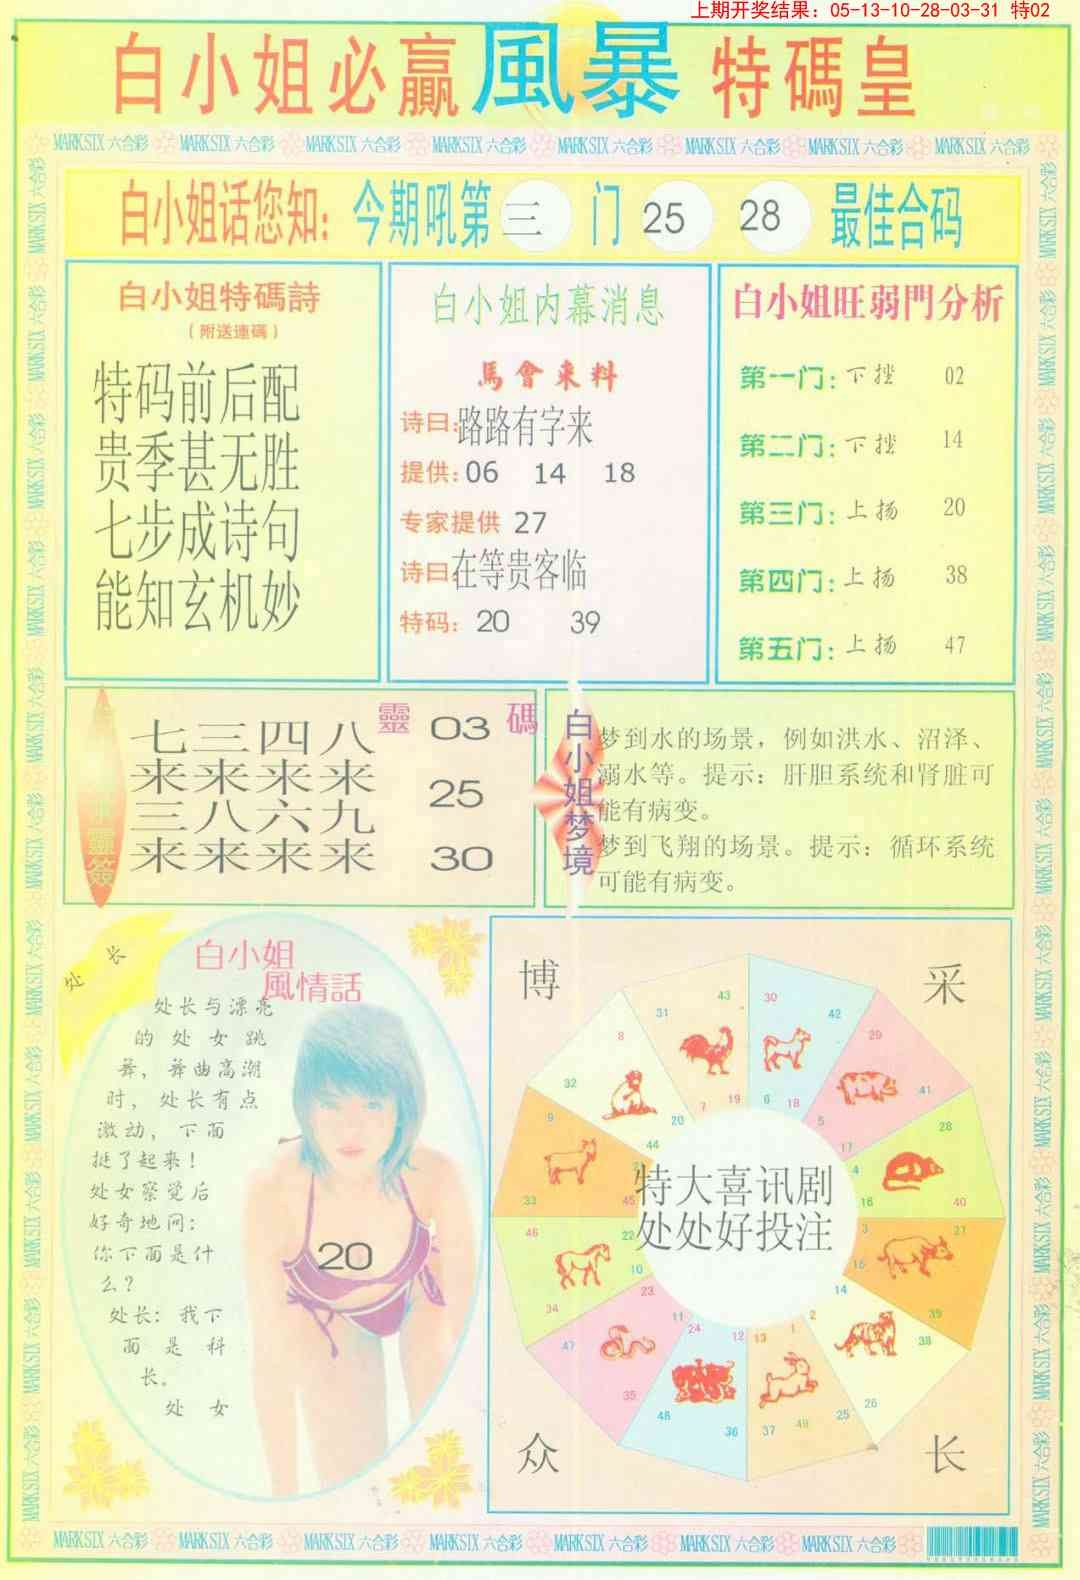 上期开奖结果：05-13-10-28-03-31 特02
白小姐必赢風暴特碼皇
MARK SIX 六合彩 MARK SIX 六合彩 MARK SIX 六合彩 MARK SIX 六合彩 MARK SIX 六合彩 MARK SIX 六合彩 MARK SIX 六合彩 MARK SIX 六合彩
白小姐话您知：今期吼第三门 25 28 最佳合码
白小姐特碼詩
（附送連碼）
特码前后配
贵季甚无胜
七步成诗句
能知玄机妙
白小姐内幕消息
馬會来料
诗曰：路路有字来
提供：06 14 18
专家提供 27
诗曰：在等贵客临
特码：20 39
白小姐旺弱門分析
第一门：下挫 02
第二门：下挫 14
第三门：上扬 20
第四门：上扬 38
第五门：上扬 47
靈簽
七三四八
来来来来
三八六九
来来来来
靈 03 碼
25
30
白小姐梦境
梦到水的场景，例如洪水、沼泽、
溺水等。提示：肝胆系统和肾脏可
能有病变。
梦到飞翔的场景。提示：循环系统
可能有病变。
处长
白小姐
風情話
处长与漂亮
的处女跳
舞，舞曲高潮
时，处长有点
激动，下面
挺了起来！
处女察觉后
好奇地问：
你下面是什
么？
处长：我下
面是科
长。
处女
20
博 采
43 30
31 42
8 29
32 41
7 19 6 18
20 5
9 44 17 28
4
33 45 16 40
特大喜讯剧
处处好投注
46 22 3 27
10 15
34 23 14 39
11 24 12 13 1 2
47 38
35 26
48 36 37 49 25
众 长
MARK SIX 六合彩 MARK SIX 六合彩 MARK SIX 六合彩 MARK SIX 六合彩 MARK SIX 六合彩 MARK SIX 六合彩 MARK SIX 六合彩